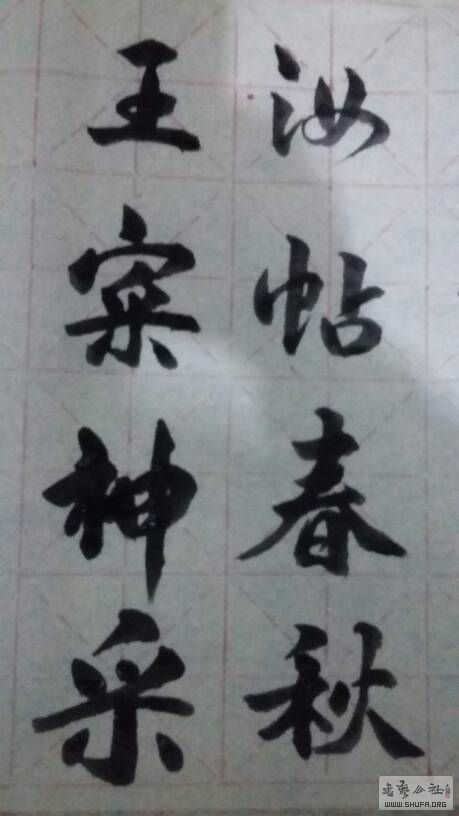 汝帖春秋
王寀神采
书艺公社
WWW.SHUFA.ORG